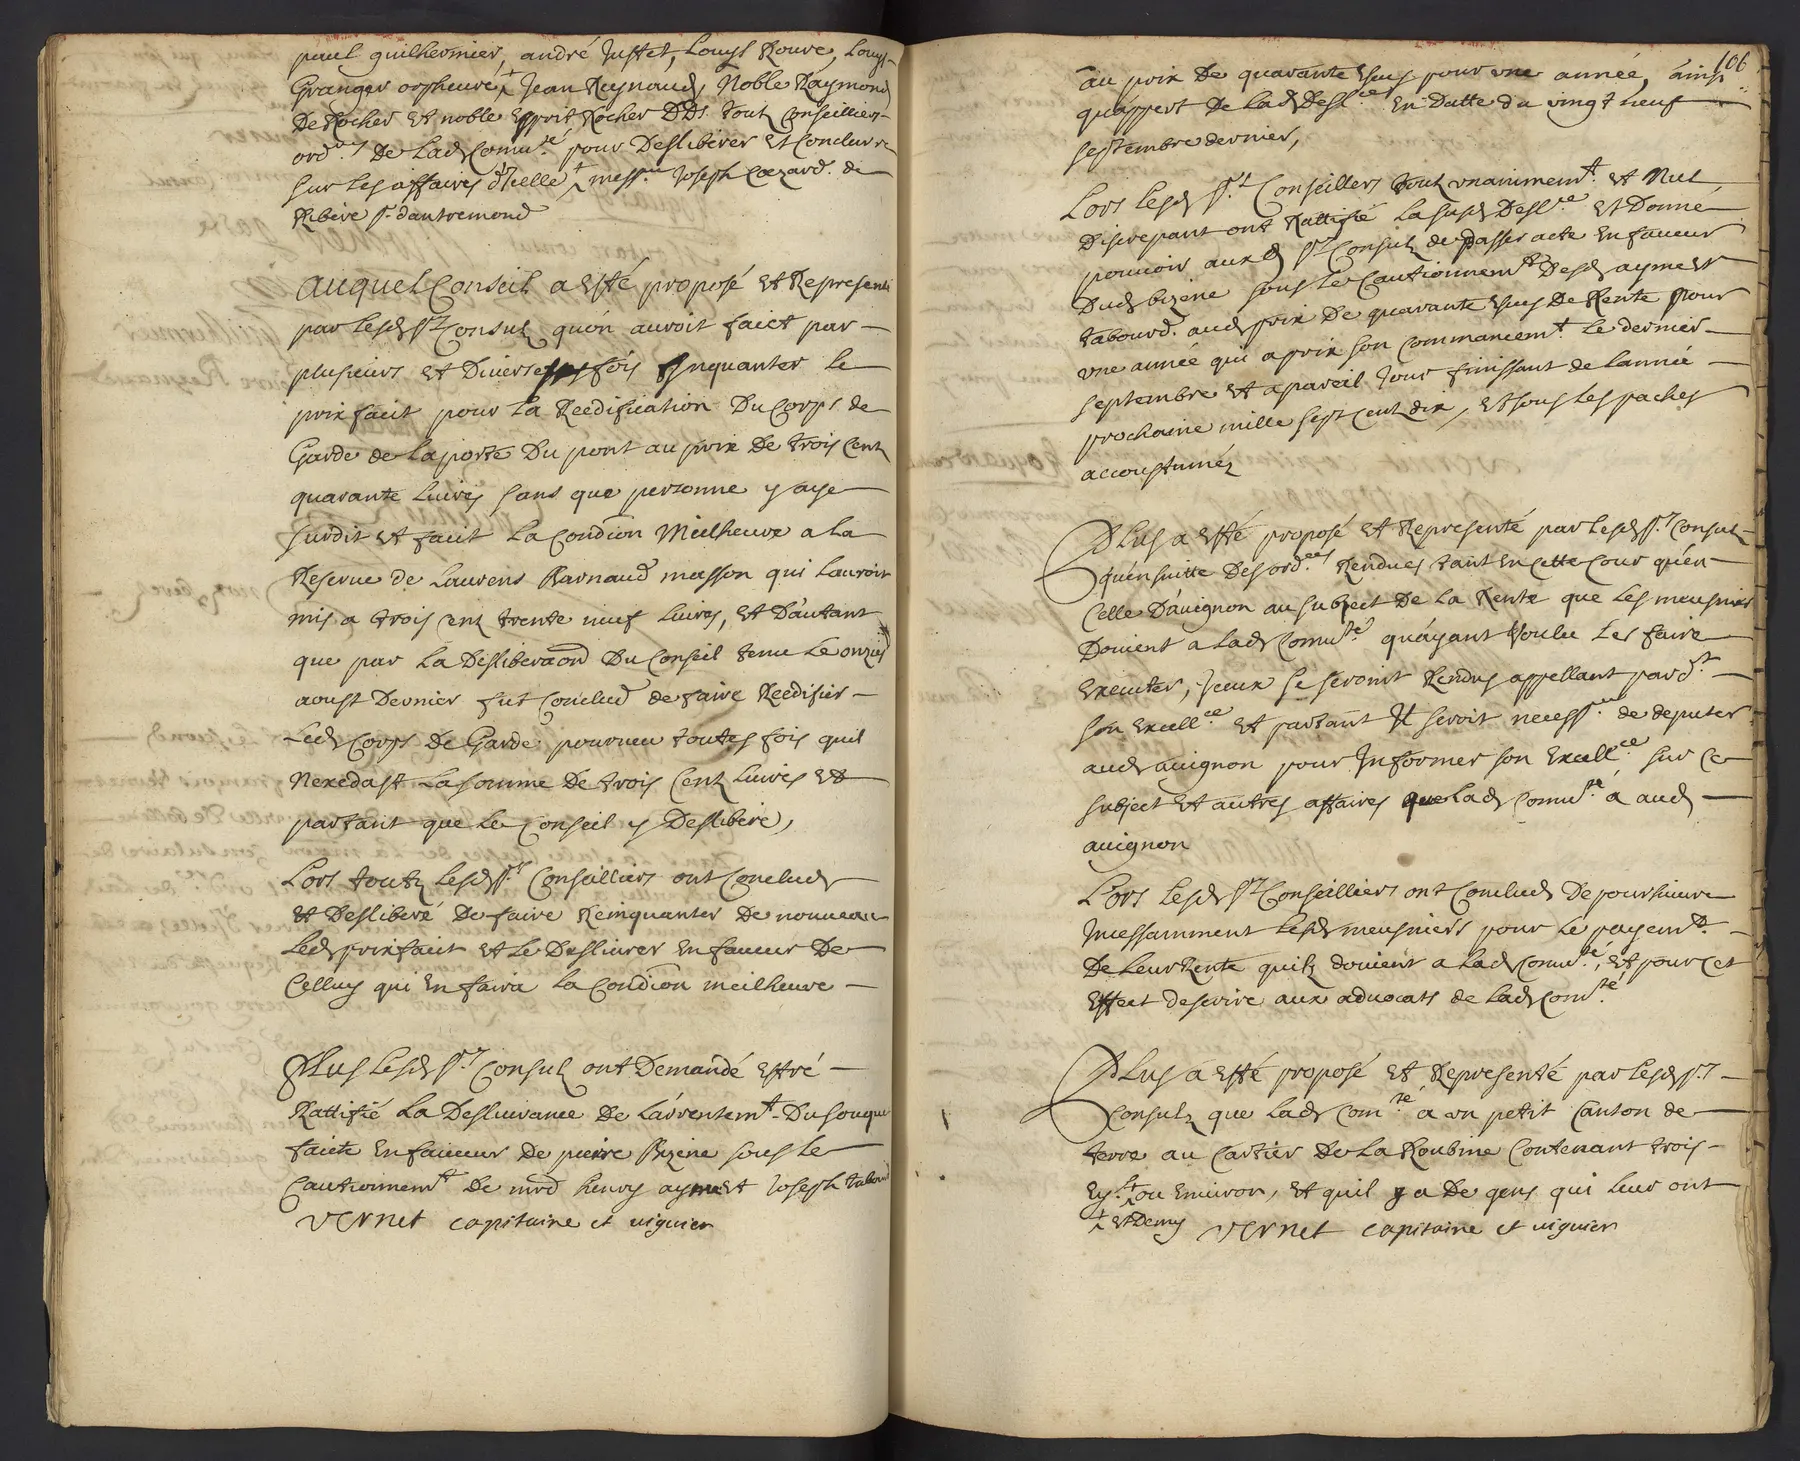 paul guilhermier, andré Justet, Louys Roure, Louys
Granger orpheuré, Jean Reynaud, Noble Raymond
De Rocher et noble Esprit Rocher DDs. tout Conseilliers
ord.res De Lad Comu.té pour Deslibérer Et Conclurre
sur les affaires d'Icelle + mess.re Joseph Cazard. de
Ribère s.r dautremond
Auquel Conseil a esté proposé et Representé
par lesd s.rs Consulz qu'on auroit faict par
plusieurs et Diverses fois Inquanter le
prixfaict pour La Réédification Du Corps de
Garde de la porte Du pont au prix De trois Centz
quarante livres sans que personne y aye
surdit et fait La Condion Meilheure a la
Reserve de Laurens Barnaud masson qui Lauroit
mis a trois Centz trente neuf Livres, et D'autant
que par La Desliberaon Du Conseil tenu Le onzie
aoust Dernier fut Conclud de faire Réédifier
Led Corps De Garde pourveu toutes fois quil
Nexedast La somme De trois Centz Livres et
partant que Le Conseil y Deslibère,
Lors toutz lesd s.rs Conseilliers ont Conclud
et Desliberé De faire Reinquanter De nouveau
Led prixfait et Le Deslivrer En faveur De
Celluy qui En faira la Condion meilheure
Plus Lesd s.rs Consulz ont Demandé estré
Rattifié La Deslivrance De L'arrentem.t Du souquet
faicte En faveur De pierre Bizene sous Le
Cautionnem.t De mrd henry aymeret Joseph tabourd
Vernet capitaine et viguier
106
au prix De quarante escus pour une année, ainsi
quappert De Lad Desl.ce En Datte du vingt neuf
septembre dernier,
Lors lesd s.rs Conseillers tout unanimem.t et Nul
Discrepant ont Rattifié La susd Desl.ce et Donné
pouvoir auxd s.rs Consulz de passer acte En faveur
Dud bizene sous Le Cautionnem.t Desd aymeret
tabourd. aud prix De quarante escus De Rente pour
une année qui a prix son Commancem.t Le dernier
septembre et a pareil Jour finissant de Lannée
prochaine mille sept Centz dix, et sous Les paches
accoustuméz
Plus a esté proposé et Representé par Lesd s.rs Consulz
qu'ensuitte Des ord.ces Rendues tant En cette Cour qu'en
Celle D'avignon au subject De La Rente que Les meusniers
Doivent a Lad Comu.té qu'ayant Voulu Les faire
executer, Iceux se seroint Rendus appellant pard.t
son excell.ce et partant Il seroit necess.re de deputer
aud avignon pour Informer son excell.ce sur ce
subject et autres affaires que Lad Comu.té a aud
avignon
Lors Lesd s.rs Conseilliers ont Conclud De poursuivre
Incessamment Lesd meusniers pour Le payem.t
De Leur Rente quilz doivent a Lad Comu.té, et pour cet
effect descrire aux advocats de Lad Com.té
Plus a esté proposé et Representé par Lesd s.rs
Consulz que Lad Com.té a un petit Canton de
terre au Cartier De La Roubine Contenant trois
ey. + ou Environ, et quil y a De gens qui leur ont
+ et Demy Vernet capitaine et viguier